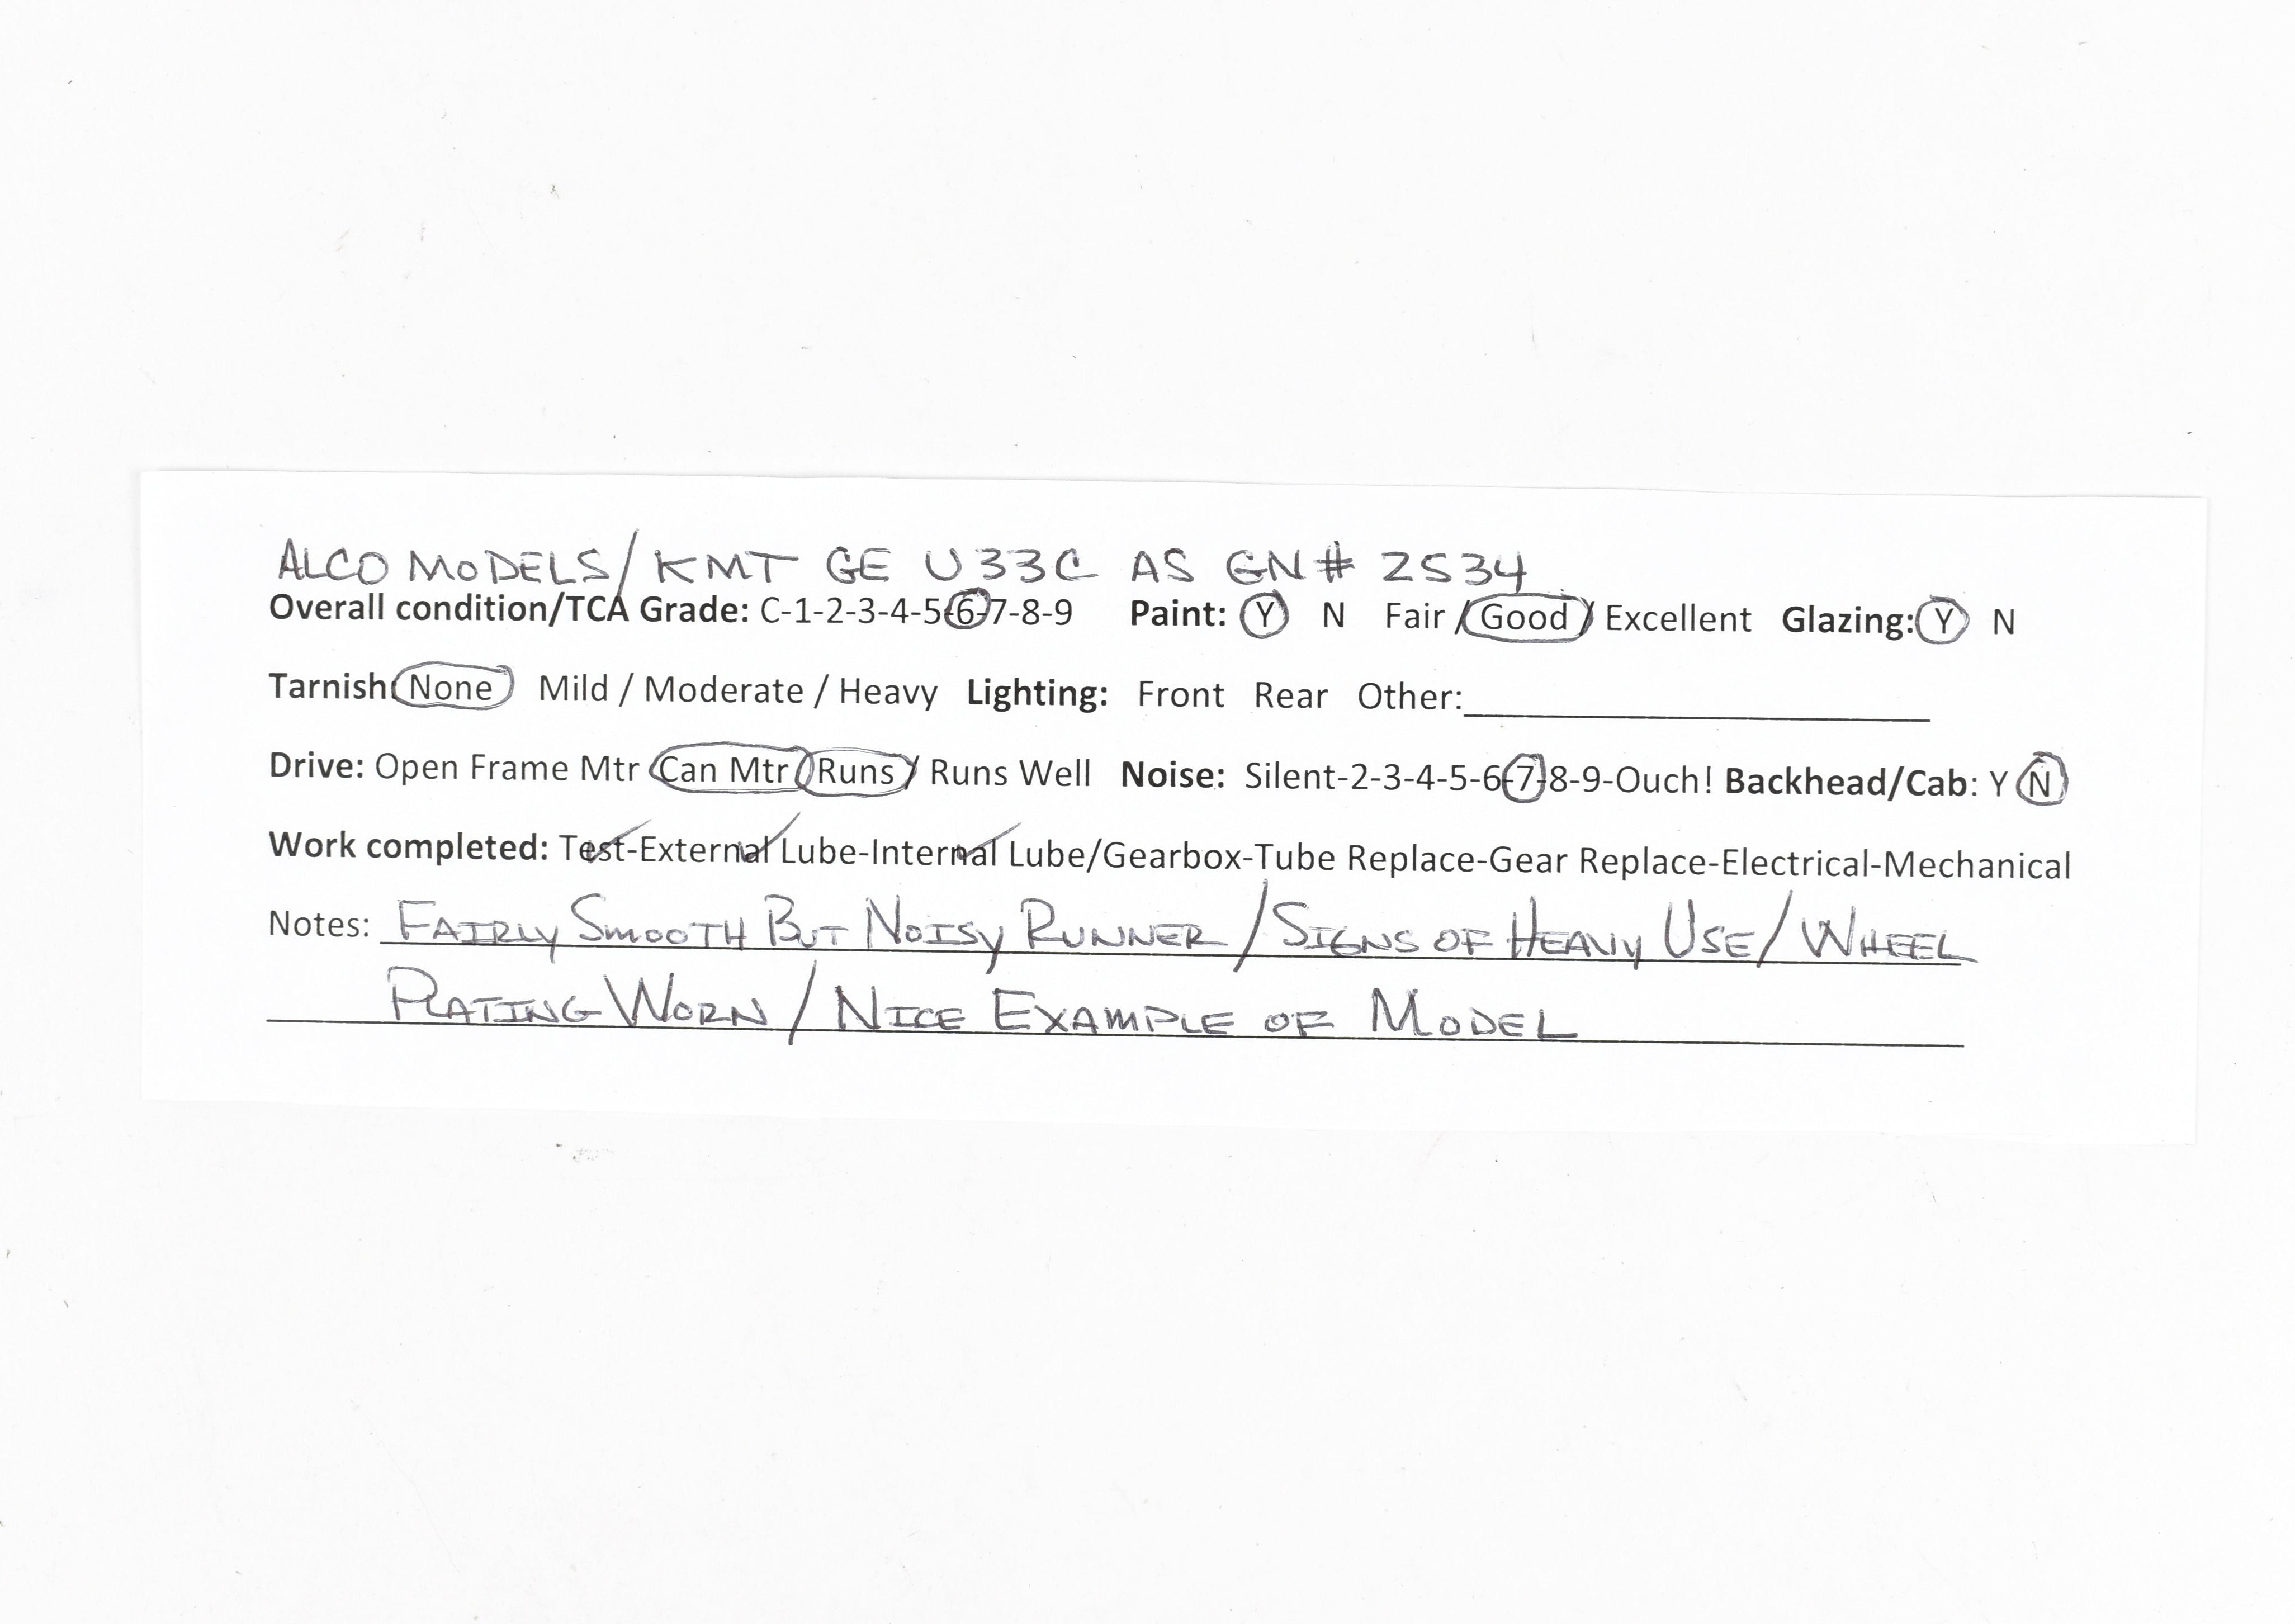 ALCO MODELS/KMT GE U33C AS GN# 2534
Overall condition/TCA Grade: C-1-2-3-4-5-6-7-8-9 Paint: Y N Fair / Good / Excellent Glazing: Y N
Tarnish None Mild / Moderate / Heavy Lighting: Front Rear Other:
Drive: Open Frame Mtr Can Mtr Runs / Runs Well Noise: Silent-2-3-4-5-6-7-8-9-Ouch! Backhead/Cab: Y N
Work completed: Test-External Lube-Internal Lube/Gearbox-Tube Replace-Gear Replace-Electrical-Mechanical
Notes: FAIRLY SMOOTH BUT NOISY RUNNER / SIGNS OF HEAVY USE / WHEEL
PLATING WORN / NICE EXAMPLE OF MODEL